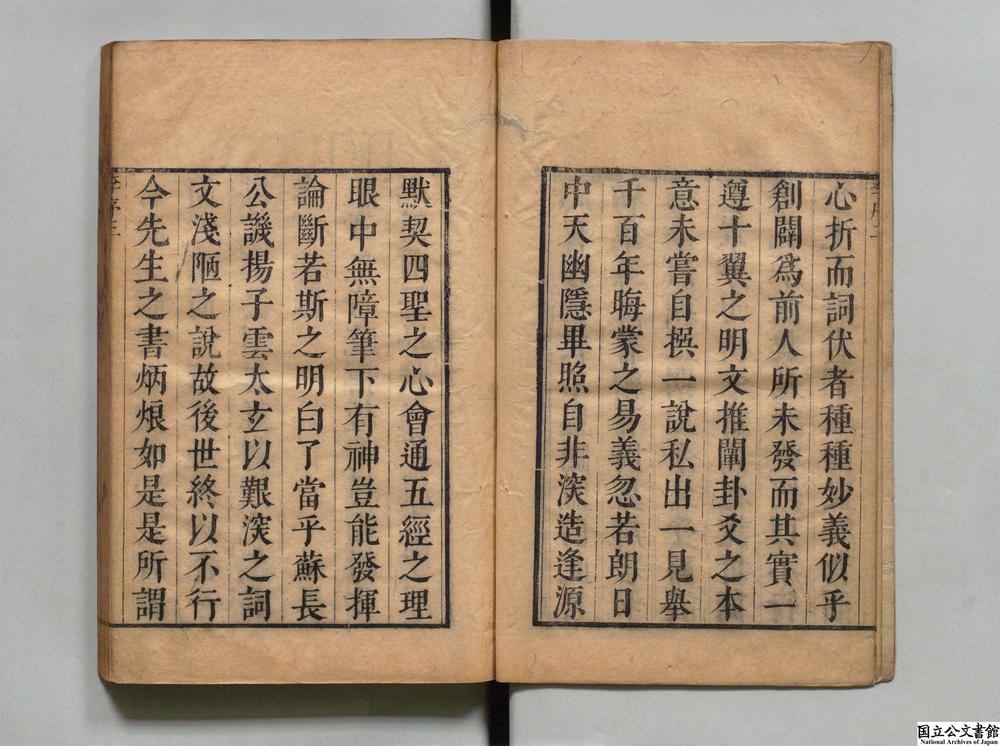 心折而詞伏者種種妙義似乎
創闢為前人所未發而其實一
遵十翼之明文推闡卦爻之本
意未嘗自撰一說私出一見舉
千百年晦蒙之易義忽若朗日
中天幽隱畢照自非湥造逢源
默契四聖之心會通五經之理
眼中無障筆下有神豈能發揮
論斷若斯之明白了當乎蘇長
公譏揚子雲太玄以艱湥之詞
文淺陋之說故後世終以不行
今先生之書炳烺如是是所謂
序三
国立公文書館
National Archives of Japan